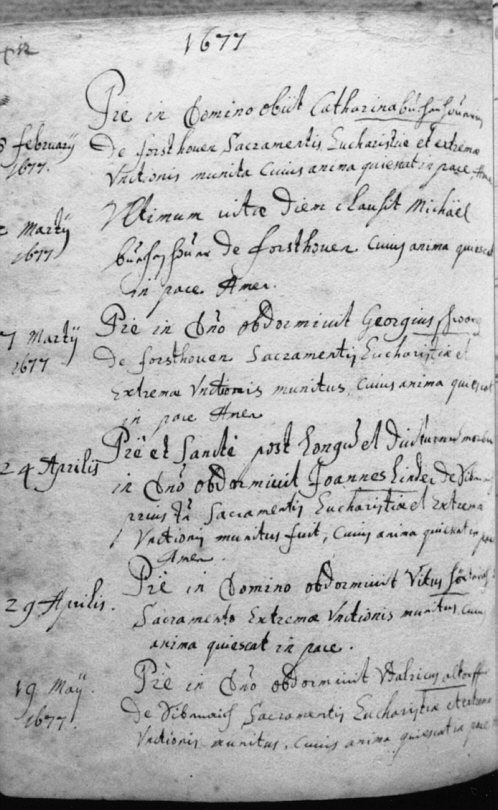 1677
Pie in Domino obiit Catharina
8 february De forsthouen Sacramentis Eucharistiæ et extremæ
1677. Vnctionis munita cuius anima quiescat in pace Amen
Vltimum uitæ diem clausit Michäel
Martij
1677 De forsthouen cuius anima quiescat
in pace Amen.
7 Martij Pie in Dño obdormiuit Georgius
1677 De forsthouen Sacramentis Eucharistiæ et
Extremæ Vnctionis munitus, cuius anima quiescat
in pace Amen
24 Aprilis Pië et Sanctè post longũ et diuturnum morbum
in Dño obdormiuit Joannes Linder De
prius Sacramentis Eucharistiæ et Extremæ
Vnctionis munitus fuit, cuius anima quiescat in pace
Amen.
29 Aprilis. Piè in Domino obdormiuit Vitus
Sacramento Extremæ Vnctionis munitus, cuius
anima quiescat in pace.
19 Maij Piè in Dño obdormiuit Vdalricus altorff
1677. De Sacramentis Eucharistiæ et extremæ
Vnctionis munitus, cuius anima quiescat in pace